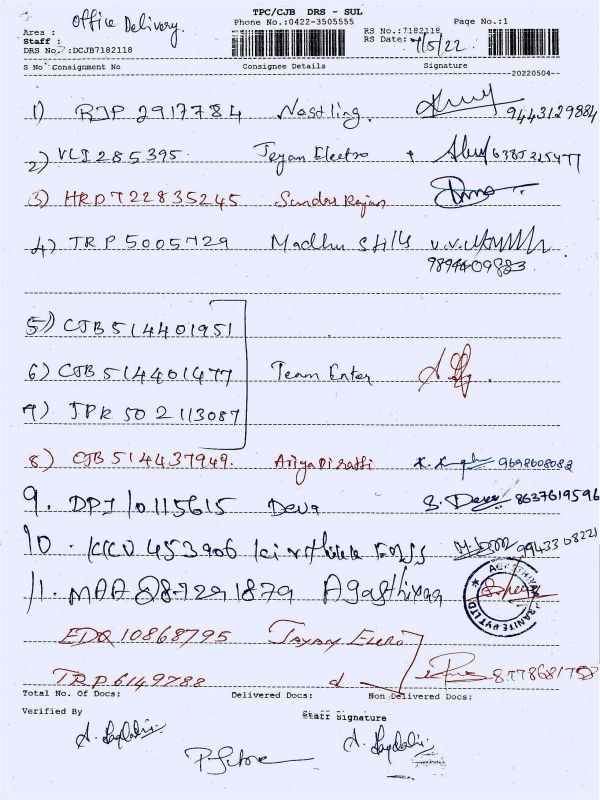 TPC/CJB DRS - SUL
Office Delivery
Phone No.:0422-3505555 Page No.:1
Area :
Staff :
DRS No.:DCJB7182118
RS No.:7182118
RS Date: 7/5/22
S No Consignment No Consignee Details Signature
--20220504--
1) RJP 2917784 Nestling. 9443129884
2) VLI 285395 Jeyam Electro 6385325477
3) HRD722835245 Sundar Rajan
4) TRP 5005729 Madhu
9894409883
5) CJB 514401951
6) CJB 514401477 Team Enter
7) JPR 502113087
8) CJB 514437949. 9698608082
9. DPI 10115615 Deva S. Deva 8637619596
10. 9943308221
11. MAA Agasthiyaa
EDQ 10868795 Jayam
TRP 6149788
Total No. Of Docs: Delivered Docs: Non Delivered Docs:
Verified By Staff Signature